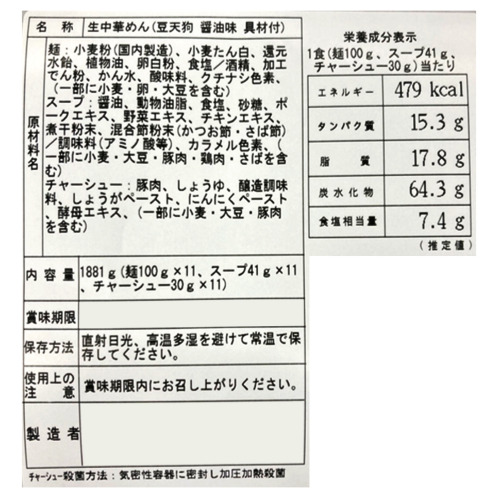 名　称　生中華めん(豆天狗 醤油味 具材付)
原材料名
麺：小麦粉(国内製造)、小麦たん白、還元
水飴、植物油、卵白粉、食塩／酒精、加工
でん粉、かん水、酸味料、クチナシ色素、
(一部に小麦・卵・大豆を含む)
スープ：醤油、動物油脂、食塩、砂糖、ポ
ークエキス、野菜エキス、チキンエキス、
煮干粉末、混合節粉末(かつお節・さば節)
／調味料(アミノ酸等)、カラメル色素、(
一部に小麦・大豆・豚肉・鶏肉・さばを含
む)
チャーシュー：豚肉、しょうゆ、醸造調味
料、しょうがペースト、にんにくペースト
、酵母エキス、(一部に小麦・大豆・豚肉
を含む)
内 容 量　1881g(麺100g×11、スープ41g×11
、チャーシュー30g×11)
賞味期限
保存方法　直射日光、高温多湿を避けて常温で保
存してください。
使用上の
注　意　賞味期限内にお召し上がりください。
製 造 者
ﾁｬｰｼｭｰ殺菌方法：気密性容器に密封し加圧加熱殺菌
栄養成分表示
1食(麺100g、スープ41g、
チャーシュー30g)当たり
エネルギー　479 kcal
タンパク質　15.3 g
脂　質　17.8 g
炭水化物　64.3 g
食塩相当量　7.4 g
(推定値)